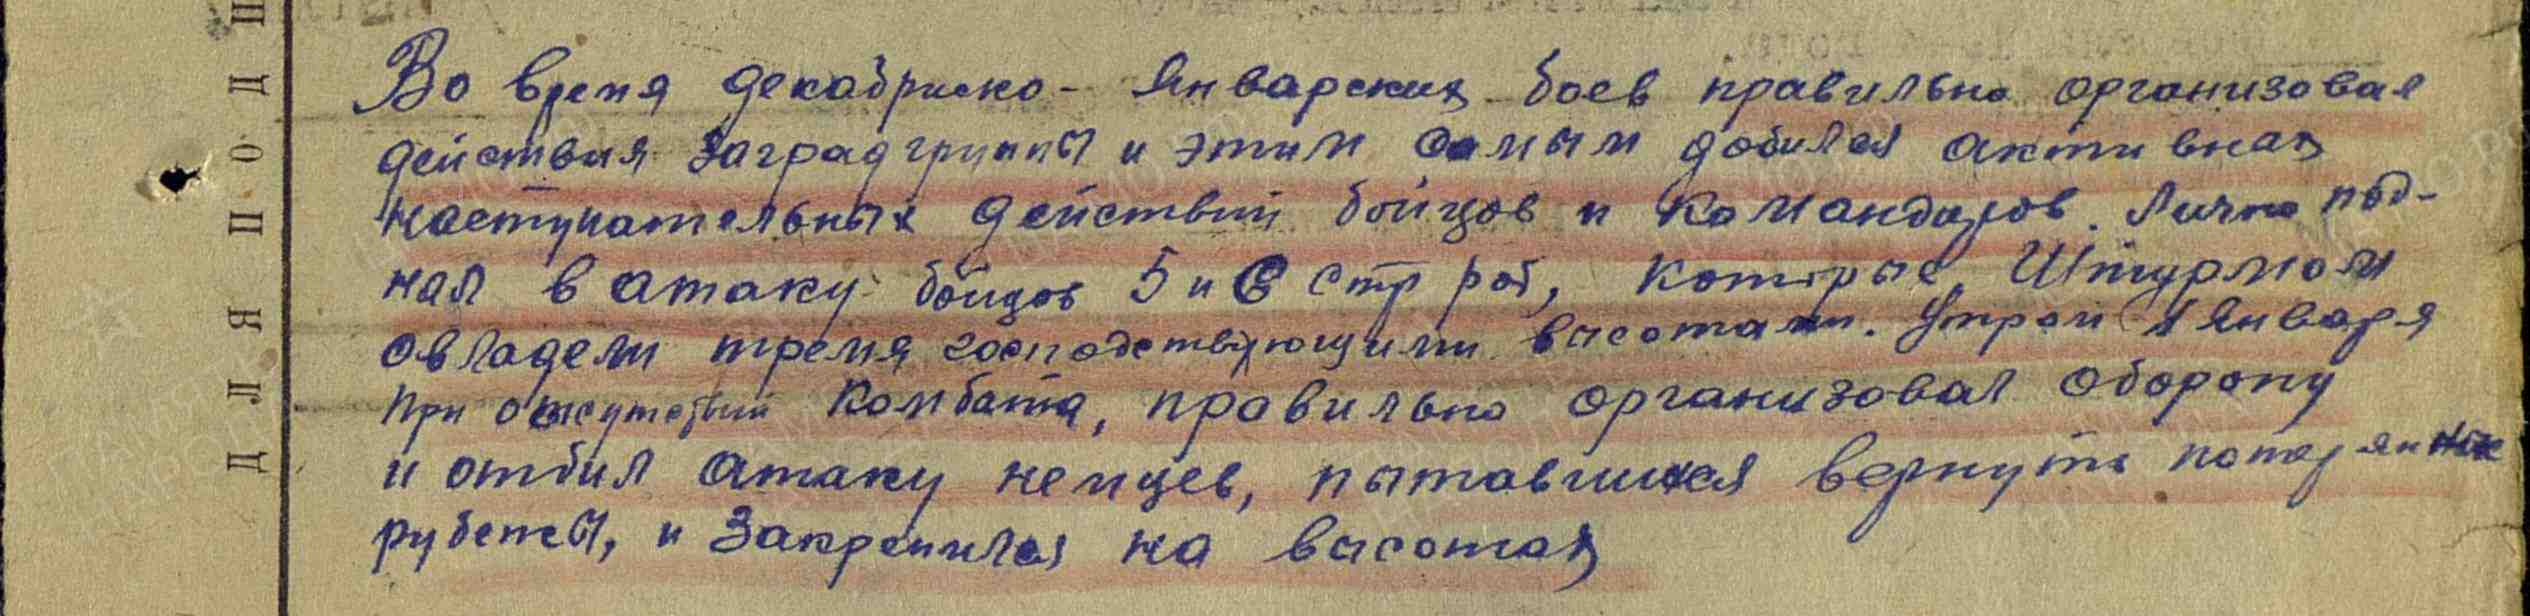 Во время декабрьско - Январских боев правильно организовал
действия Заградгруппы и этим самым добился активных
наступательных действий бойцов и командиров. Лично под-
нял в атаку бойцов 5 и 6 стр рот, которые Штурмом
овладели тремя господствующими высотами. Утром 1 Января
при отсутствии Комбата, правильно организовал оборону
и отбил атаку немцев, пытавшихся вернуть потерянные
рубежи, и Закрепился на высотах
ДЛЯ ПОДП